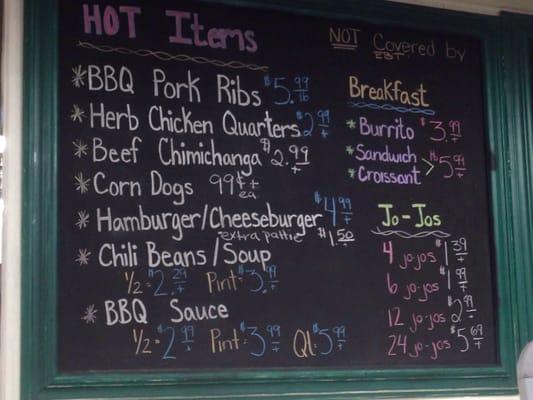 HOT Items
*BBQ Pork Ribs $5.99 lb
*Herb Chicken Quarters $2.99 +
*Beef Chimichanga $2.99 +
*Corn Dogs 99¢+ ea
*Hamburger/Cheeseburger $4.99 +
extra pattie $1.50 +
*Chili Beans/Soup
1/2=$2.29 + Pint=$3.99 +
*BBQ Sauce
1/2=$2.99 + Pint=$3.99 + Qt=$5.99 +
NOT Covered by
EBT
Breakfast
*Burrito $3.99 +
*Sandwich
*Croissant > $5.99 +
Jo-Jos
4 jo-jos $1.39 +
6 jo-jos $1.99 +
12 jo-jos $2.99 +
24 jo-jos $5.69 +